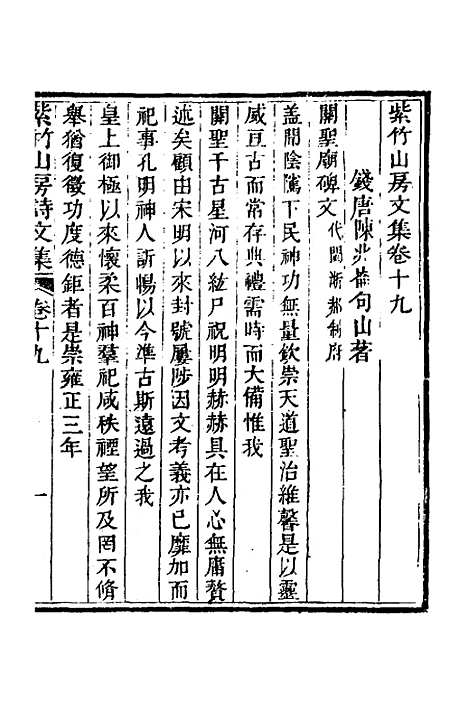 紫竹山房文集卷十九
錢唐陳兆崙句山著
關聖廟碑文代閩浙郝制府
蓋聞陰騭下民神功無量欽崇天道聖治維馨是以靈
威亘古而常存典禮需時而大備惟我
關聖千古星河八紘尸祝明明赫赫具在人心無庸贅
述矣顧由宋明以來封號屢陟因文考義亦已靡加而
祀事孔明神人訢暢以今準古斯遠過之我
皇上御極以來懷柔百神羣祀咸秩禋望所及罔不脩
舉猶復徵功度德鉅者是崇雍正三年
紫竹山房詩文集
卷十九
一